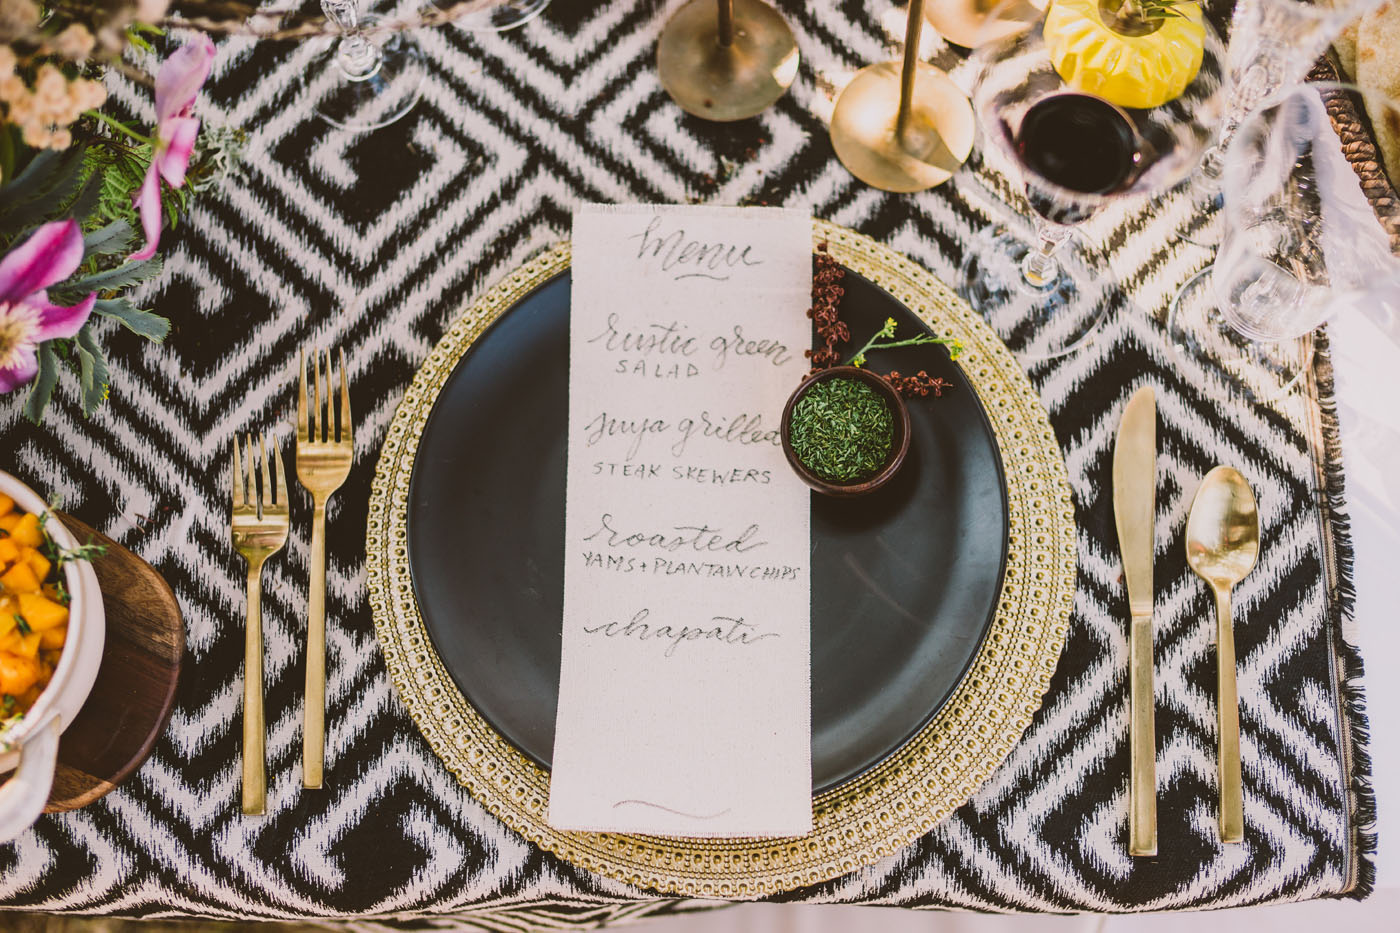 Menu
rustic green
SALAD
suya grilled
STEAK SKEWERS
roasted
YAMS + PLANTAIN CHIPS
chapati